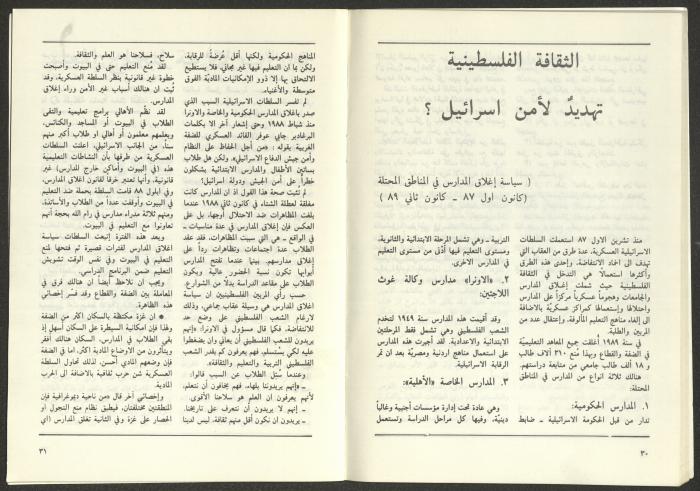 الثقافة الفلسطينية
تهديدٌ لأمن اسرائيل ؟
( سياسة إغلاق المدارس في المناطق المحتلة
(كانون اول ٨٧ ــ كانون ثاني ٨٩ )
منذ تشرين الاول ٨٧ استعملت السلطات
الاسرائيلية العسكرية، عدة طرق من العقاب التي
تهدف الى اخماد الانتفاضة. وإحدى هذه الطرق
وأكثرها استعمالًا هي التدخل في الثقافة
الفلسطينية حيث شملت إغلاق المدارس
والجامعات وهجوماً عسكرياً مركزاً على المدارس
واحتلالها وإستعمالها كمراكز عسكرية بالاضافة
إلى إلغاء مناهج التعليم المألوفة، وإعتقال عدد من
المربين والطلبة.
في سنة ١٩٨٩ أغلقت جميع المعاهد التعليمية
في الضفة والقطاع وبهذا مُنع ٣١٠ آلاف طالب
و ١٨ ألف طالب جامعي من متابعة دراستهم.
هنالك ثلاثة انواع من المدارس في المناطق
المحتلة:
١. المدارس الحكومية:
تدار من قبل الحكومة الاسرائيلية ــ ضابط
التربية ــ وهي تشمل المرحلة الابتدائية والثانوية.
ومستوى التعليم فيها أدنى من مستوى التعليم
في المدارس الاخرى.
٢. «الاونرا» مدارس وكالة غوث
اللاجئين:
وقد أقيمت هذه المدارس سنة ١٩٤٩ لتخدم
الشعب الفلسطيني وهي تشمل فقط المرحلتين
الابتدائية والاعدادية. لقد أُجبرت هذه المدارس
على استعمال مناهج اردنية ومصرية بعد ان تمر
الرقابة الاسرائيلية.
٣. المدارس الخاصة «الأهلية»:
وهي عادة تحت إدارة مؤسسات أجنبية وغالباً
دينية، وفيها كل مراحل الدراسة وتستعمل
٣٠
المناهج الحكومية ولكنها أقل عُرضةً للرقابة.
ولكن بما ان التعليم فيها غير مجاني، فلا يستطيع
الالتحاق بها إلا ذوو الإمكانيات المادية الفوق
متوسطة والأغنياء.
لم تفسر السلطات الاسرائيلية السبب الذي
حدا بإغلاق المدارس الحكومية والخاصة والاونرا
منذ شباط ١٩٨٨ وحتى إشعار آخر الا بكلمات
البرغادير جابي عوفر القائد العسكري للضفة
الغربية بقوله : «من أجل الحفاظ على النظام
وأمن جيش الدفاع الاسرائيلي». ولكن هل طلاب
بساتين الأطفال والمدارس الابتدائية يشكلون
خطراً على أمن الجيش ودولة اسرائيل؟
لم تثبت صحة هذا القول اذ ان المدارس كانت
مغلقة لعطلة الشتاء في كانون ثاني ١٩٨٨ عندما
بلغت المظاهرات ضد الاحتلال أوجها، بل على
العكس فإن إغلاق المدارس في عدة مناسبات ــ
في الواقع ــ هي التي سببت المظاهرات. فقد عقد
الطلاب عدة اجتماعات وتظاهرات رداً على
إغلاق مدارسهم. بينما عندما تفتح المدارس
أبوابها تكون نسبة الحضور عالية ويكون
الطلاب على مقاعد الدراسة بدلًا من الشوارع.
حسب رأي المربين الفلسطينيين ان سياسة
اغلاق المدارس هي وسيلة عقاب جماعي، وذلك
لارغام الشعب الفلسطيني على وضع حد
للانتفاضة. فكما قال مسؤول في الاونرا: «إنهم
يريدون للشعب الفلسطيني أن يعاني وأن يضغطوا
عليه لكي يستسلم. فهم يعرفون كم يقدر الشعب
الفلسطيني التربية والتعليم والثقافة».
وعندما سُئل الطلاب عن السبب قالوا:
ــ «إنهم يريدوننا بلهاء، فهم يخافون أن نتعلم.
لأنهم يعرفون ان العلم هو سلاحنا الأقوى.
ــ إنهم لا يريدون أن نتعرف على تاريخنا.
ــ يريدون ان نكون أقل منهم ثقافة. ليس لدينا
سلاح، فسلاحنا هو العلم والثقافة.
لقد مُنع التعليم حتى في البيوت وأصبحت
خطوة غير قانونية بنظر السلطة العسكرية، وقد
ثبت ان هنالك أسباب غير الأمن وراء إغلاق
المدارس.
لقد نظم الأهالي برامج تعليمية والتقى
الطلاب في البيوت او المساجد والكنائس،
ويعلمهم معلمون أو أهالي او طلاب أكبر منهم
سناً، من الجانب الاسرائيلي، أعلنت السلطات
العسكرية من طرفها بأن النشاطات التعليمية
هذه (في البيوت وأماكن خارج المدارس) غير
قانونية، وأنها تعتبر خرقاً لقانون إغلاق المدارس.
وفي ايلول ٨٨ قامت السلطة بحملة ضد التعليم
في البيوت وأوقفت عدداً من الطلاب والأساتذة،
ومنهم ثلاثة مدراء مدارس في رام الله بحجة أنهم
تعاونوا مع التعليم في البيوت.
وبعد هذه الفترة إتبعت السلطات سياسة
اغلاق المدارس لفترات قصيرة ثم فتحها لمنع
التعليم في البيوت وفي نفس الوقت تشويش
التعليم ضمن البرنامج الدراسي.
ويجب ان نلاحظ أيضاً ان هنالك فرق في
المعاملة بين الضفة والقطاع وقد فسّر إخصائي
هذه الظاهرة.
● ان غزة مكتظة بالسكان اكثر من الضفة
ولهذا فإن امكانية السيطرة على السكان أسهل إذ
بقي الطلاب في المدارس. السكان هنالك أفقر
ويتأثرون من الاوضاع المادية اكثر. اما في الضفة
فإن وضعهم المادي أحسن. لذلك تحاول السلطة
العسكرية شن حرب ثقافية بالاضافة الى الحرب
المادية.
وإخصائي آخر قال «من ناحية ديموغرافية فإن
المنطقتين مختلفتان، فيطبق نظام منع التجول أو
الحصار على غزة وفي الثانية تغلق المدارس (أي
٣١